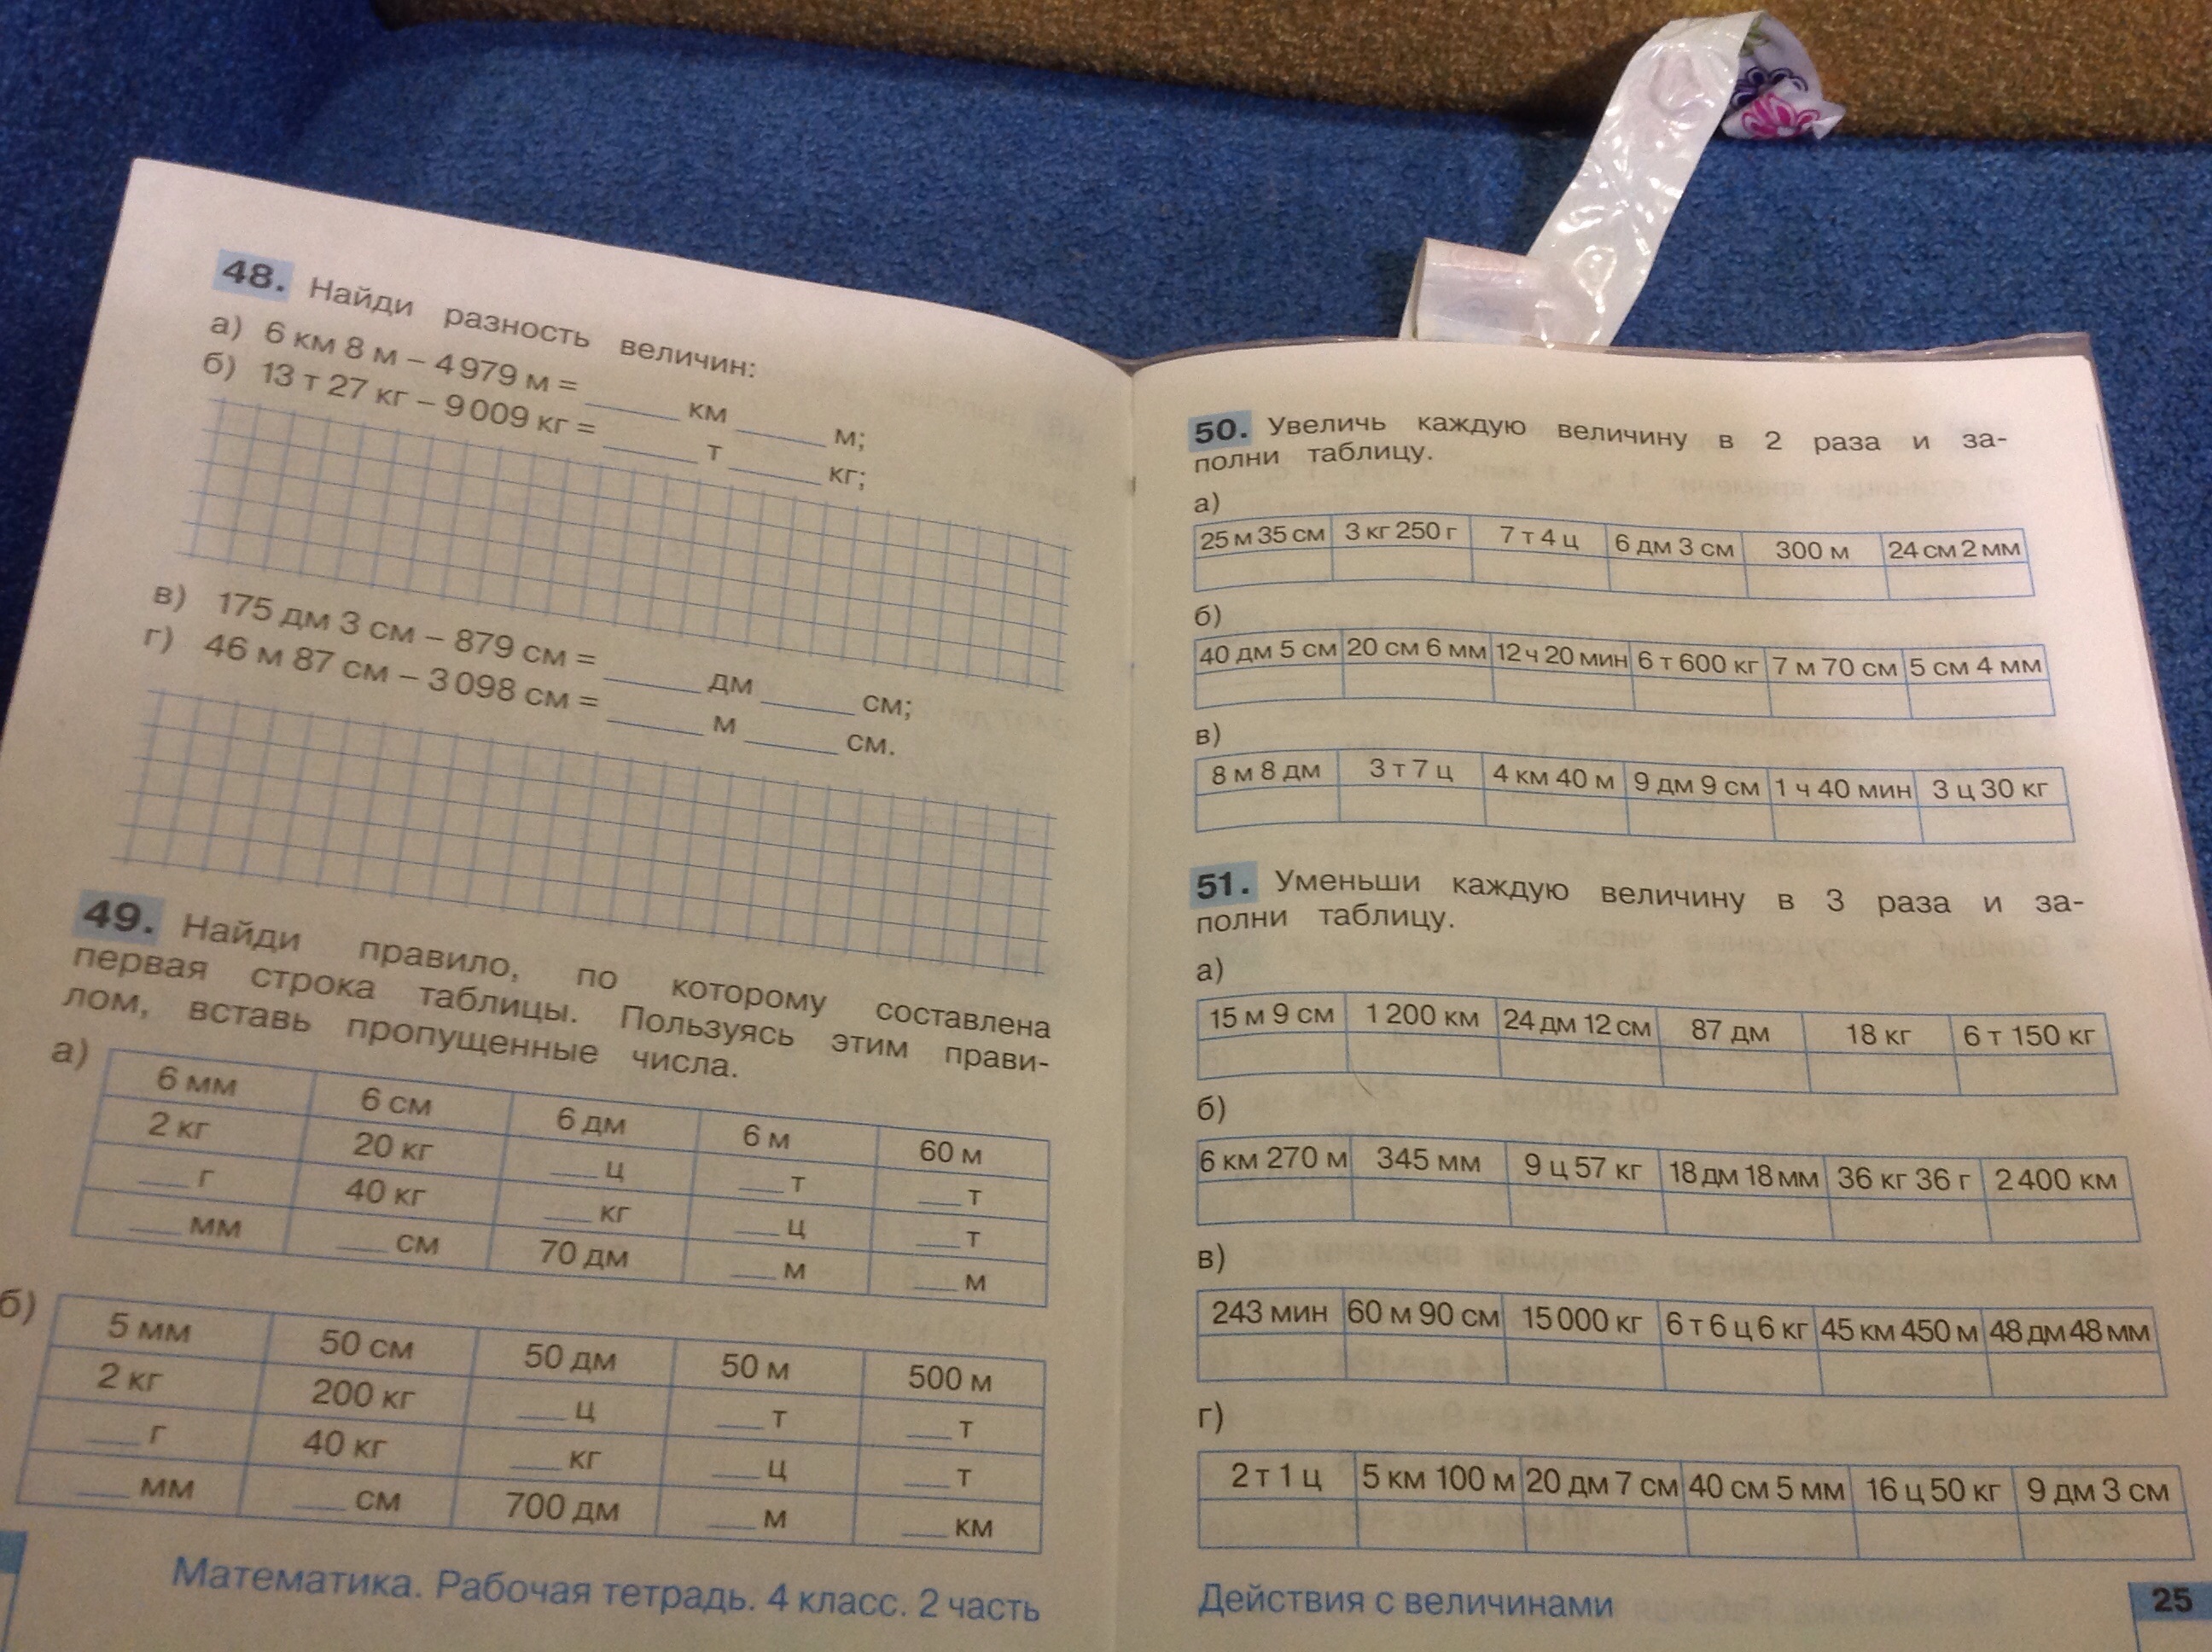 48. Найди разность величин:
а) 6 км 8 м – 4 979 м = ____ км ____ м;
б) 13 т 27 кг – 9 009 кг = ____ т ____ кг;
в) 175 дм 3 см – 879 см = ____ дм ____ см;
г) 46 м 87 см – 3 098 см = ____ м ____ см.
49. Найди правило, по которому составлена
первая строка таблицы. Пользуясь этим прави-
лом, вставь пропущенные числа.
а)
6 мм 6 см 6 дм 6 м 60 м
2 кг 20 кг ___ ц ___ т ___ т
___ г 40 кг ___ кг ___ ц ___ т
___ мм ___ см 70 дм ___ м ___ м
б)
5 мм 50 см 50 дм 50 м 500 м
2 кг 200 кг ___ ц ___ т ___ т
___ г 40 кг ___ кг ___ ц ___ т
___ мм ___ см 700 дм ___ м ___ км
Математика. Рабочая тетрадь. 4 класс. 2 часть
50. Увеличь каждую величину в 2 раза и за-
полни таблицу.
а)
25 м 35 см 3 кг 250 г 7 т 4 ц 6 дм 3 см 300 м 24 см 2 мм
б)
40 дм 5 см 20 см 6 мм 12 ч 20 мин 6 т 600 кг 7 м 70 см 5 см 4 мм
в)
8 м 8 дм 3 т 7 ц 4 км 40 м 9 дм 9 см 1 ч 40 мин 3 ц 30 кг
51. Уменьши каждую величину в 3 раза и за-
полни таблицу.
а)
15 м 9 см 1 200 км 24 дм 12 см 87 дм 18 кг 6 т 150 кг
б)
6 км 270 м 345 мм 9 ц 57 кг 18 дм 18 мм 36 кг 36 г 2 400 км
в)
243 мин 60 м 90 см 15 000 кг 6 т 6 ц 6 кг 45 км 450 м 48 дм 48 мм
г)
2 т 1 ц 5 км 100 м 20 дм 7 см 40 см 5 мм 16 ц 50 кг 9 дм 3 см
Действия с величинами
25